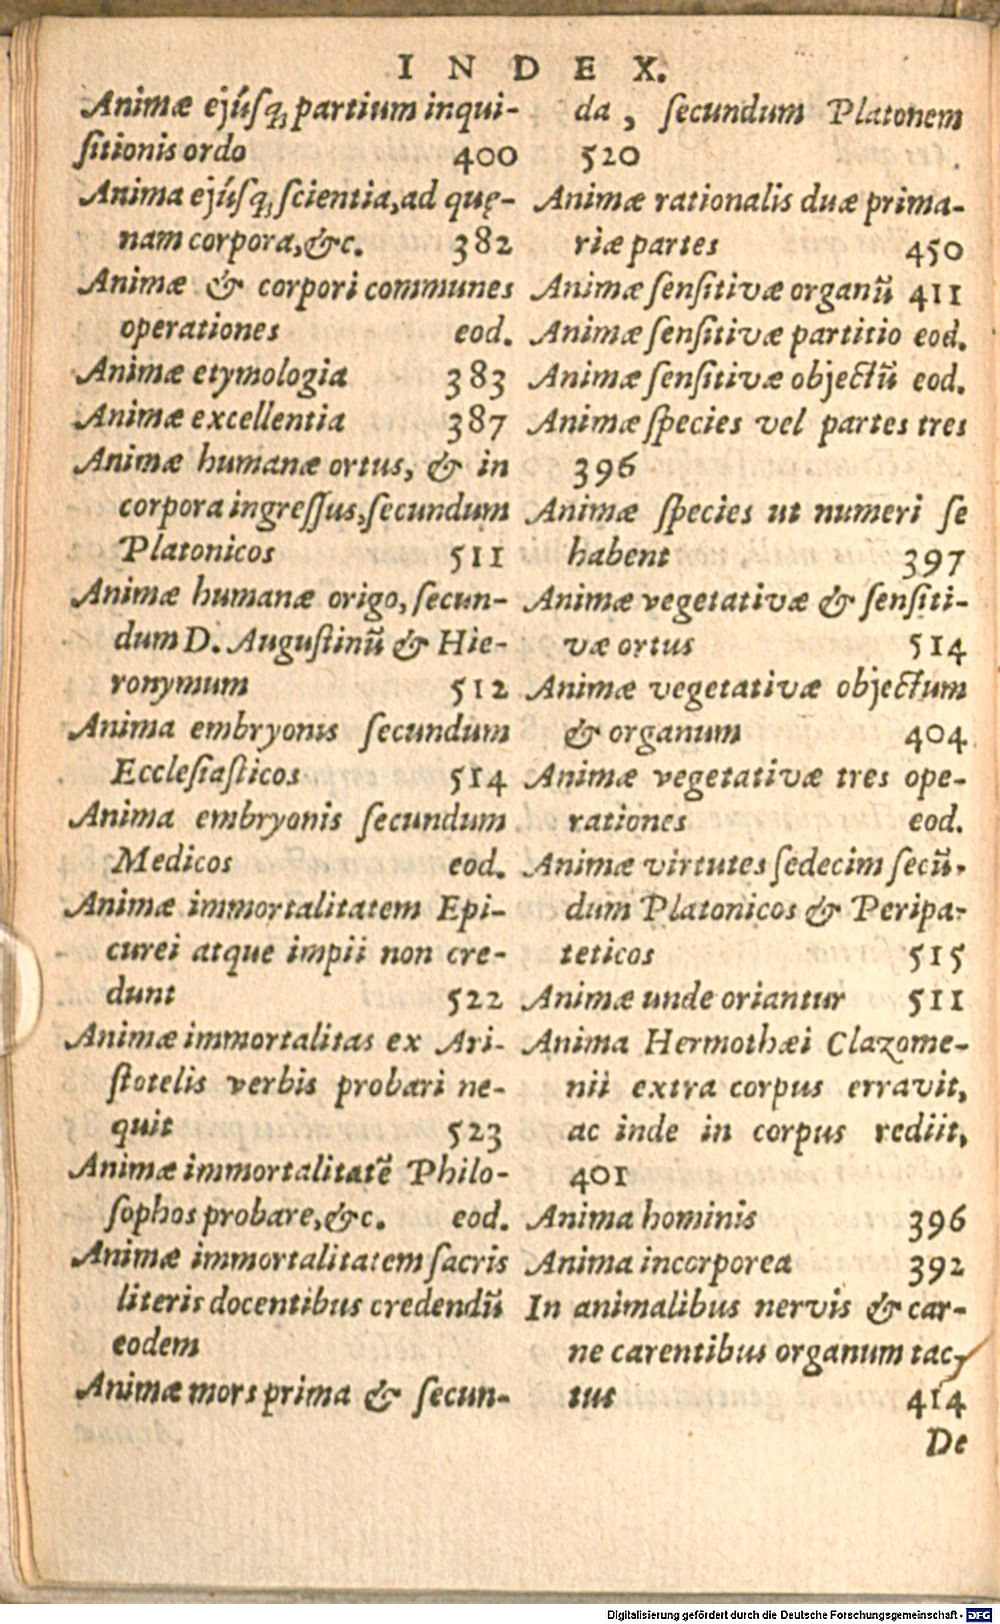 INDEX.
Animæ ejúsq; partium inqui-
sitionis ordo 400
Anima ejúsq; scientia, ad quę-
nam corpora, &c. 382
Animæ & corpori communes
operationes eod.
Animæ etymologia 383
Animæ excellentia 387
Animæ humanæ ortus, & in
corpora ingressus, secundum
Platonicos 511
Animæ humanæ origo, secun-
dum D. Augustinū & Hie-
ronymum 512
Anima embryonis secundum
Ecclesiasticos 514
Anima embryonis secundum
Medicos eod.
Animæ immortalitatem Epi-
curei atque impii non cre-
dunt 522
Animæ immortalitas ex Ari-
stotelis verbis probari ne-
quit 523
Animæ immortalitatē Philo-
sophos probare, &c. eod.
Animæ immortalitatem sacris
literis docentibus credendū
eodem
Animæ mors prima & secun-
da, secundum Platonem
520
Animæ rationalis duæ prima-
riæ partes 450
Animæ sensitivæ organū 411
Animæ sensitivæ partitio eod.
Animæ sensitivæ objectū eod.
Animæ species vel partes tres
396
Animæ species ut numeri se
habent 397
Animæ vegetativæ & sensiti-
væ ortus 514
Animæ vegetativæ objectum
& organum 404
Animæ vegetativæ tres ope-
rationes eod.
Animæ virtutes sedecim secū-
dum Platonicos & Peripa-
teticos 515
Animæ unde oriantur 511
Anima Hermothæi Clazome-
nii extra corpus erravit,
ac inde in corpus rediit,
401
Anima hominis 396
Anima incorporea 392
In animalibus nervis & car-
ne carentibus organum tac-
tus 414
De
Digitalisierung gefördert durch die Deutsche Forschungsgemeinschaft - DFG